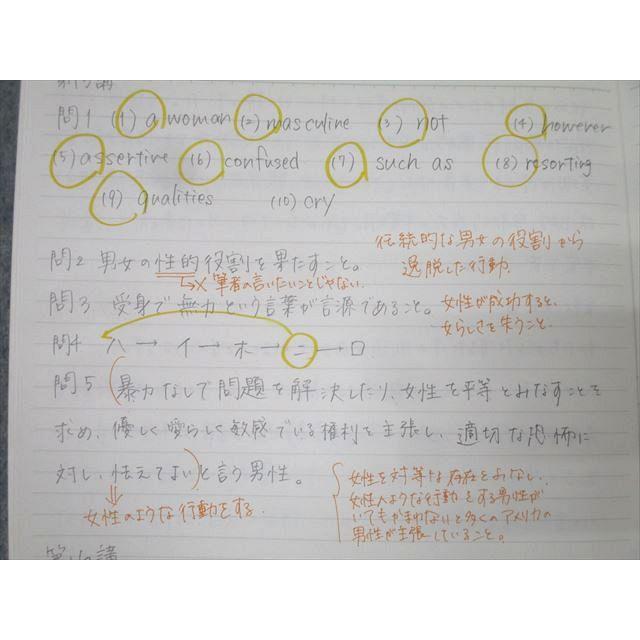 問1 (1) a woman (2) masculine (3) not (4) however
(5) assertive (6) confused (7) such as (8) resorting
(9) qualities (10) cry
問2 男女の性的役割を果たすこと。
→× 筆者の言いたいことじゃない.
伝統的な男女の役割から
逸脱した行動.
問3 受身で無力という言葉が言源であること。
女性が成功すると、
女らしさを失うこと.
問4 ハ → イ → ホ → ニ → ロ
問5 (暴力なしで問題を解決したり、女性を平等とみなすことを
求め、優しく愛らしく敏感でいる権利を主張し、適切な恐怖に
対し、怯えてよい)と言う男性。
⇒ 女性のような行動をする.
女性を対等な存在とみなし、
女性のような行動をする男性が
いてもかまわないと多くのアメリカの
男性が主張していること。